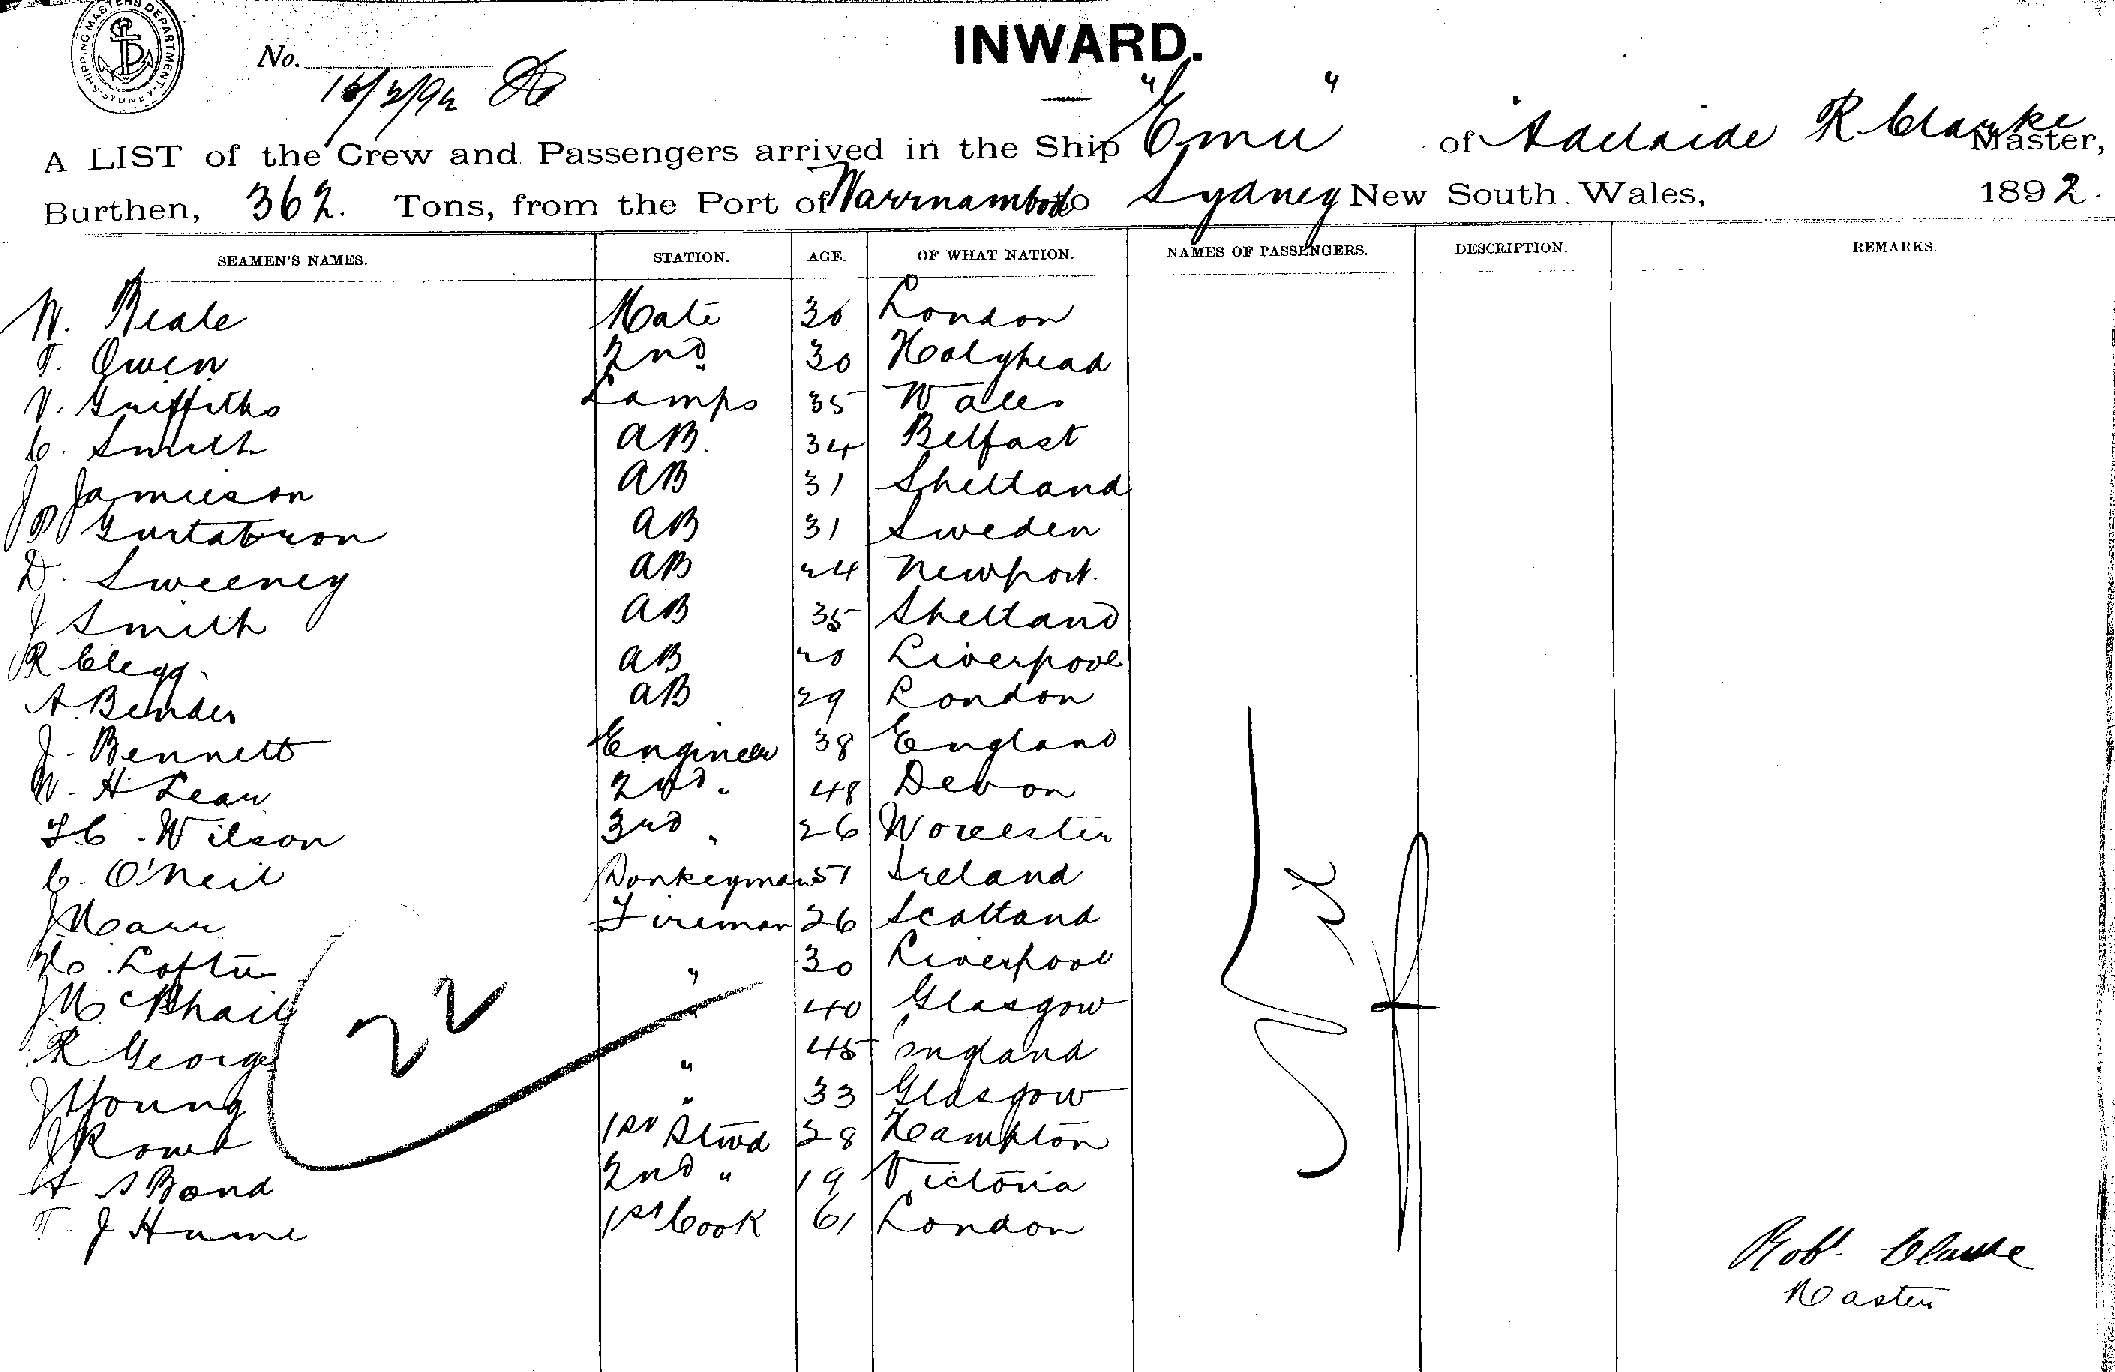 SHIPPING MASTERS DEPARTMENT
INWARD.
No.
16/2/92
A LIST of the Crew and Passengers arrived in the Ship "Emu" of Adelaide R Clarke Master,
Burthen, 362. Tons, from the Port of Warrnambool to Sydney New South Wales, 1892.
SEAMEN'S NAMES. STATION. AGE. OF WHAT NATION. NAMES OF PASSENGERS. DESCRIPTION. REMARKS.
W. Beale Mate 30 London
T. Owen 2nd " 30 Holyhead
V. Griffiths Lamps 35 Wales
C. Smith AB. 34 Belfast
J Jamieson AB 31 Shetland
P AB 31 Sweden
D. Sweeney AB 24 Newport.
J Smith AB 35 Shetland
R Clegg. AB 20 Liverpool
A. Bender AB 29 London
J. Bennett Engineer 38 England
W. H Lean 2nd " 48 Devon
F C. Wilson 3rd " 26 Worcester
C. O'Neil Donkeyman 51 Ireland
J Marr Fireman 26 Scotland
Loftus " 30 Liverpool
J McPhail " 40 Glasgow
R George " 45 England
J Young " 33 Glasgow
J Rowe 1st Stwd 28 Hampton
A S Bond 2nd " 19 Victoria
T. J Hume 1st Cook 61 London
22
Nil
Robt. Clarke
Master